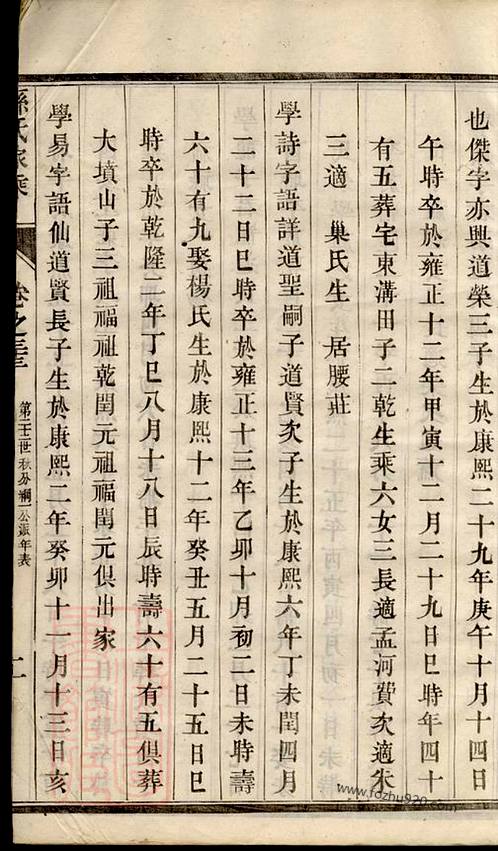 也傑字亦興道榮三子生於康熙二十九年庚午十月十四日
午時卒於雍正十二年甲寅十二月二十九日巳時年四十
有五葬宅東溝田子二乾生乘六女三長適孟河費次適朱
三適　巢氏生　居腰莊
學詩字語詳道聖嗣子道賢次子生於康熙六年丁未閏四月
二十二日巳時卒於雍正十三年乙卯十月初二日未時壽
六十有九娶楊氏生於康熙十二年癸丑五月二十五日巳
時卒於乾隆二年丁巳八月十八日辰時壽六十有五俱葬
大墳山子三祖福祖乾閏元祖福閏元俱出家
學易字語仙道賢長子生於康熙二年癸卯十一月十三日亥
孫氏家乘
卷之三
第二十世 秋分禤一公派年表
二
www.fozhu920.com